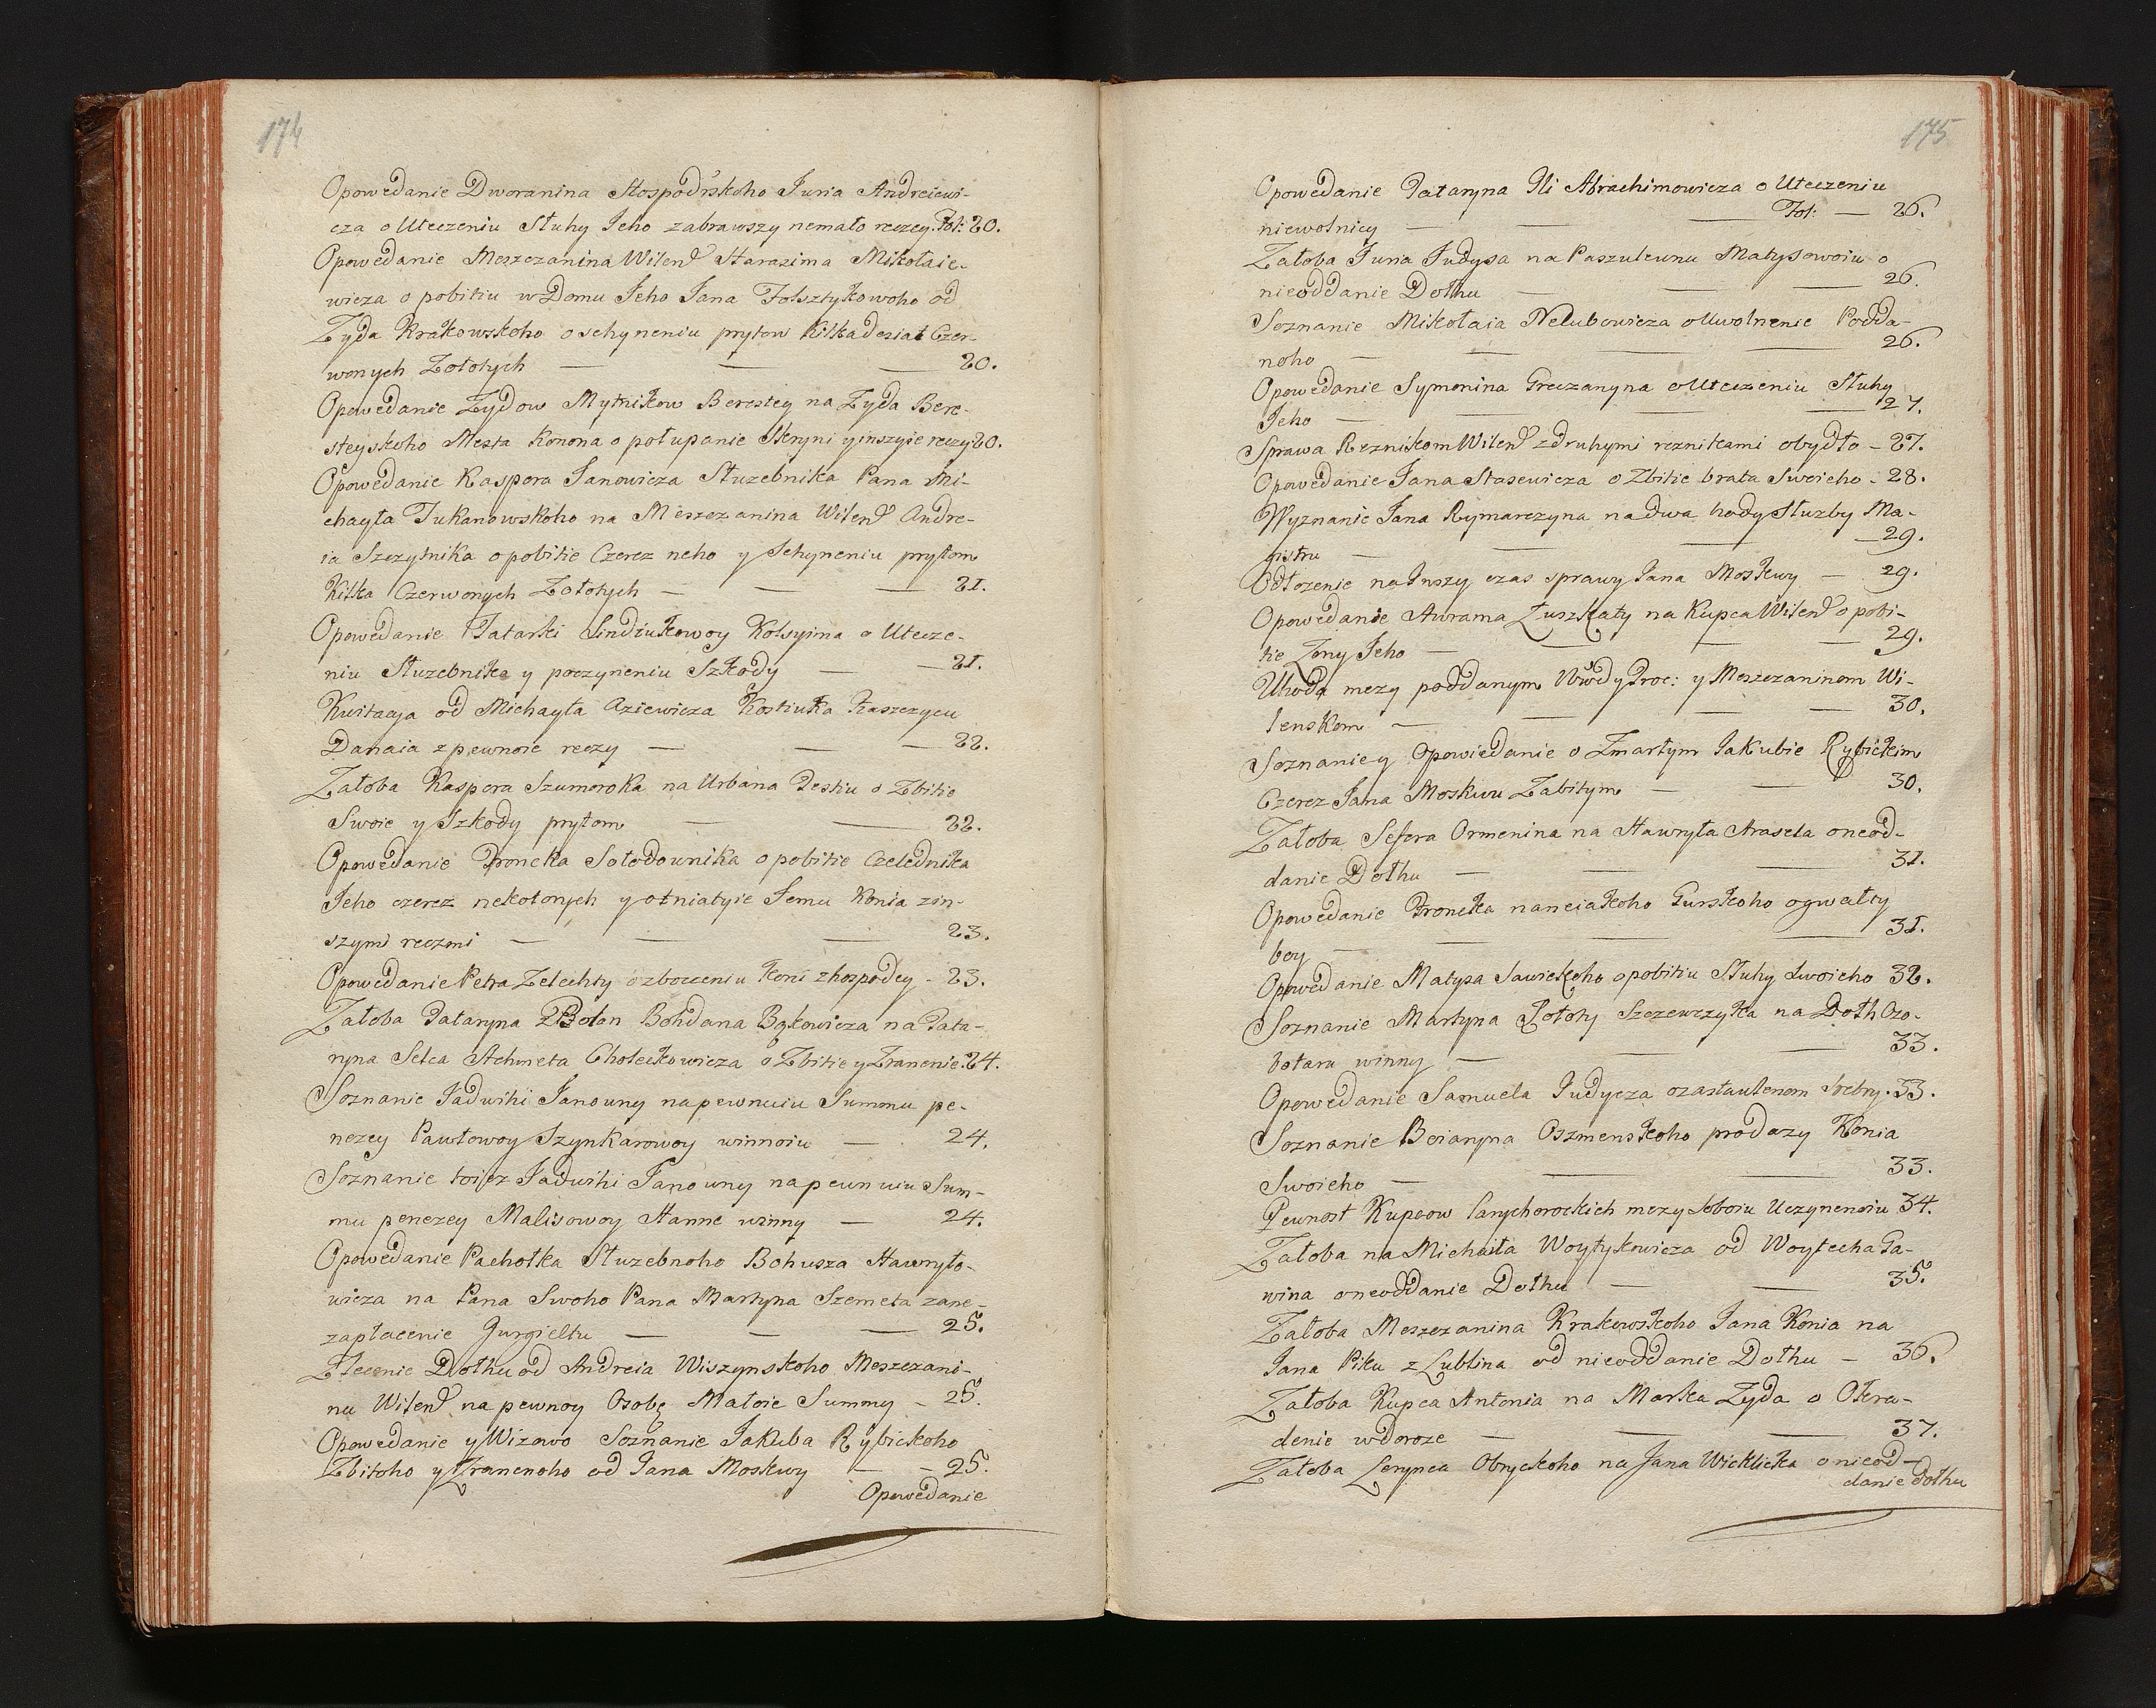 174
Opowedanie Dworanina Hospodrskoho Juria Andreiewi-
cza o Uteczeniu Słuhy Jeho zabrawszy nemało reczey. Fol: 20.
Opowedanie Meszczanina Wilend Harasima Mikołaie-
wicza o pobitiu w Domu Jeho Jana Folsztykowoho od
Żyda Krakowskoho o schyneniu prytom kilkadesiat Czer-
wonych Zołotych — — — 20.
Opowedanie Zydow Mytnikow Berestey na Żyda Bere-
steyskoho Mesta Konona o połupanie Skryni y inszyie reczy 20.
Opowedanie Kaspora Janowicza Służebnika Pana Mi-
chayła Tukanowskoho na Meszczanina Wilend Andre-
ia Szczytnika o pobitie Czerez neho y Schyneniu prytom
Kilka Czerwonych Zołotych — — — 21.
Opowedanie Tatarki Sindziukowoy Kolsyima o Utecze-
niu Służebnika y poczyneniu Szkody — — 21.
Kwitacya od Michayła Aziewicza Kostiuka Kaszczycu
Danaia z pewnoie reczy — — — 22.
Żałoba Kaspora Szumoroka na Urbana Pestiu o Zbitie
Swoie y Szkody prytom — — 22.
Opowedanie Broncka Sołodownika o pobitie Czelednika
Jeho czerez nekotorych y otniatyie Jemu Konia zin-
szymi reczmi — — — 23.
Opowedanie Petra Zelechty o zboczeniu Koni z hospodey - 23.
Żałoba Tataryna Boton Bohdana Bąkowicza na Tata-
ryna Selca Achmeta Choleckowicza o Zbitie y Zranenie. 24.
Soznanie Jadwihi Janowny na pewnuiu Summu pe-
nezey Pawłowoy Szynkarowoy winnoiu — 24.
Soznanie toiez Jadwihi Janowny na pewnuiu Sum-
mu penezey Malisowoy Hanne winny — 24.
Opowedanie Pachołka Służebnoho Bohusza Hawryło-
wicza na Pana Swoho Pana Martyna Szemeta zane-
zapłacenie Jurgieltu — — — 25.
Zlecenie Dołhu od Andreia Wiszynskoho Meszczani-
nu Wilend na pewnoy Osobę Małoie Summy - 25.
Opowedanie y Wizowo Soznanie Jakuba Rybickoho
Zbitoho y Zranenoho od Jana Moskwy — - 25.
Opowedanie
175
Opowedanie Tataryna Ili Abrachimowicza o Uteczeniu
niewolnicy — — — Fol: — 26.
Żałoba Juria Judysa na Paszulewnu Matysowoiu o
nieoddanie Dołhu — — — 26.
Soznanie Mikołaia Nelubowicza o Uwolnenie Podda-
noho — — — — 26.
Opowedanie Symonina Greczanyna o Uteczeniu Słuhy
Jeho — — — — 27.
Sprawa Reznikom Wilend z druhymi reznikami o bydło - 27.
Opowedanie Jana Stasewicza o Zbitie brata Swoieho - 28.
Wyznanie Jana Rymarczyna na dwa hody Służby Ma-
gistru — — — — 29.
Odłozenie na Inszy czas sprawy Jana Moskwy — 29.
Opowedanie Awrama Łuszkaty na Kupca Wilend o pobi-
tie Żony Jeho — — — — 29.
Uhoda mezy poddanym Wwdy Troc: y Meszczaninom Wi-
lenskom — — — — 30.
Soznanie y Opowiedanie o Zmarłym Jakubie Rybickim
Czerez Jana Moskwu Zabitym — — 30.
Żałoba Sefera Ormenina na Hawryła Araseła o neod-
danie Dołhu — — — 31.
Opowedanie Broncka na neiakoho Gurskoho o gwałty
boy — — — — 31.
Opowedanie Matysa Sawickoho o pobitiu Słuhy Swoieho 32.
Soznanie Martyna Zołoty Szczewczyka na Dołh Czo-
botaru winny — — — 33.
Opowedanie Samuela Judycza o zastawlenom Srebry. 33.
Soznanie Boiaryna Oszmenskoho prodazy Konia
Swoieho — — — 33.
Pewnost Kupcow Carychorockich mezy Soboiu Uczynenoiu 34.
Żałoba na Michaiła Woytykowicza od Woytecha Ga-
wina o neoddanie Dołhu — — 35.
Żałoba Meszczanina Krakowskoho Jana Konia na
Jana Piku z Lublina od nieoddanie Dołhu — 36.
Żałoba Kupca Antonia na Marka Żyda o Okra-
denie w doroze — — — 37.
Żałoba Ławrynca Obryckoho na Jana Wieklicka o nieod-
danie dołhu